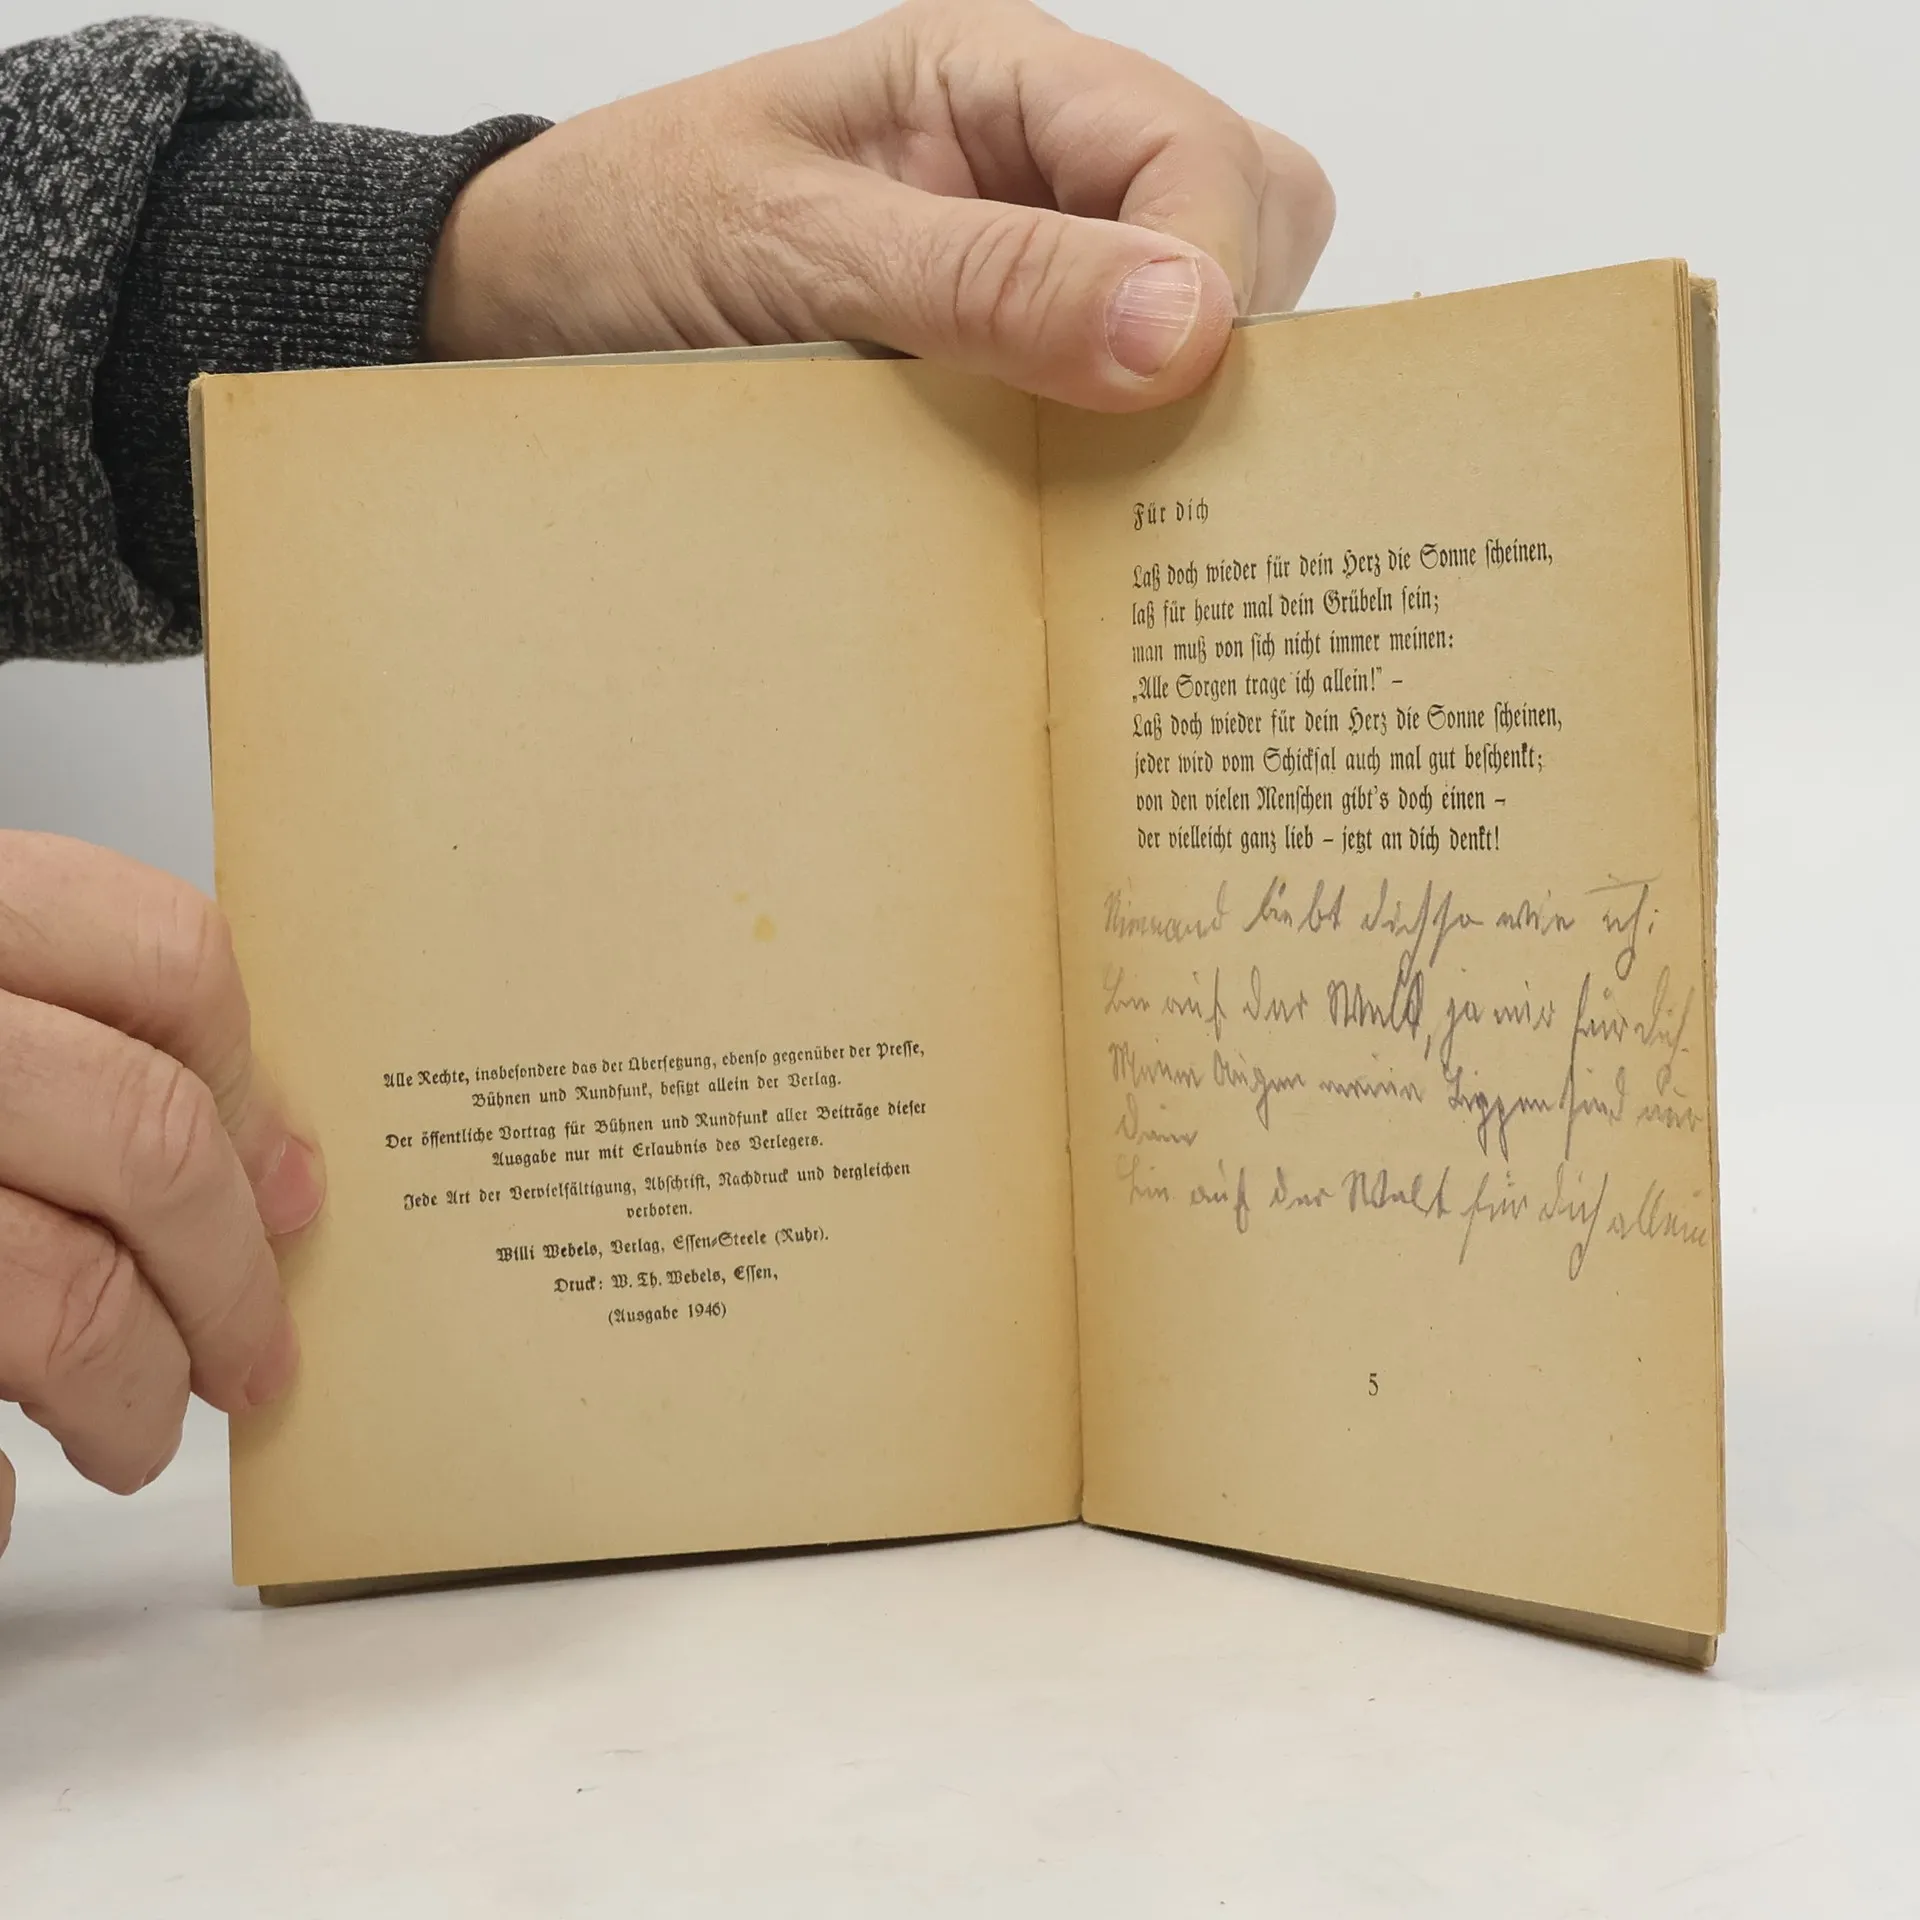 Alle Rechte, insbesondere das der Übersetzung, ebenso gegenüber der Presse,
Bühnen und Rundfunk, besitzt allein der Verlag.
Der öffentliche Vortrag für Bühnen und Rundfunk aller Beiträge dieser
Ausgabe nur mit Erlaubnis des Verlegers.
Jede Art der Vervielfältigung, Abschrift, Nachdruck und dergleichen
verboten.
Willi Webels, Verlag, Essen-Steele (Ruhr).
Druck: W. Th. Webels, Essen,
(Ausgabe 1946)
Für dich
Laß doch wieder für dein Herz die Sonne scheinen,
laß für heute mal dein Grübeln sein;
man muß von sich nicht immer meinen:
„Alle Sorgen trage ich allein!” –
Laß doch wieder für dein Herz die Sonne scheinen,
jeder wird vom Schicksal auch mal gut beschenkt;
von den vielen Menschen gibt's doch einen –
der vielleicht ganz lieb – jetzt an dich denkt!
Niemand liebt dich so wie ich:
bin auf der Welt, ja nur für dich.
Meine Augen meine Lippen sind nur
dein
bin auf der Welt für dich allein
5